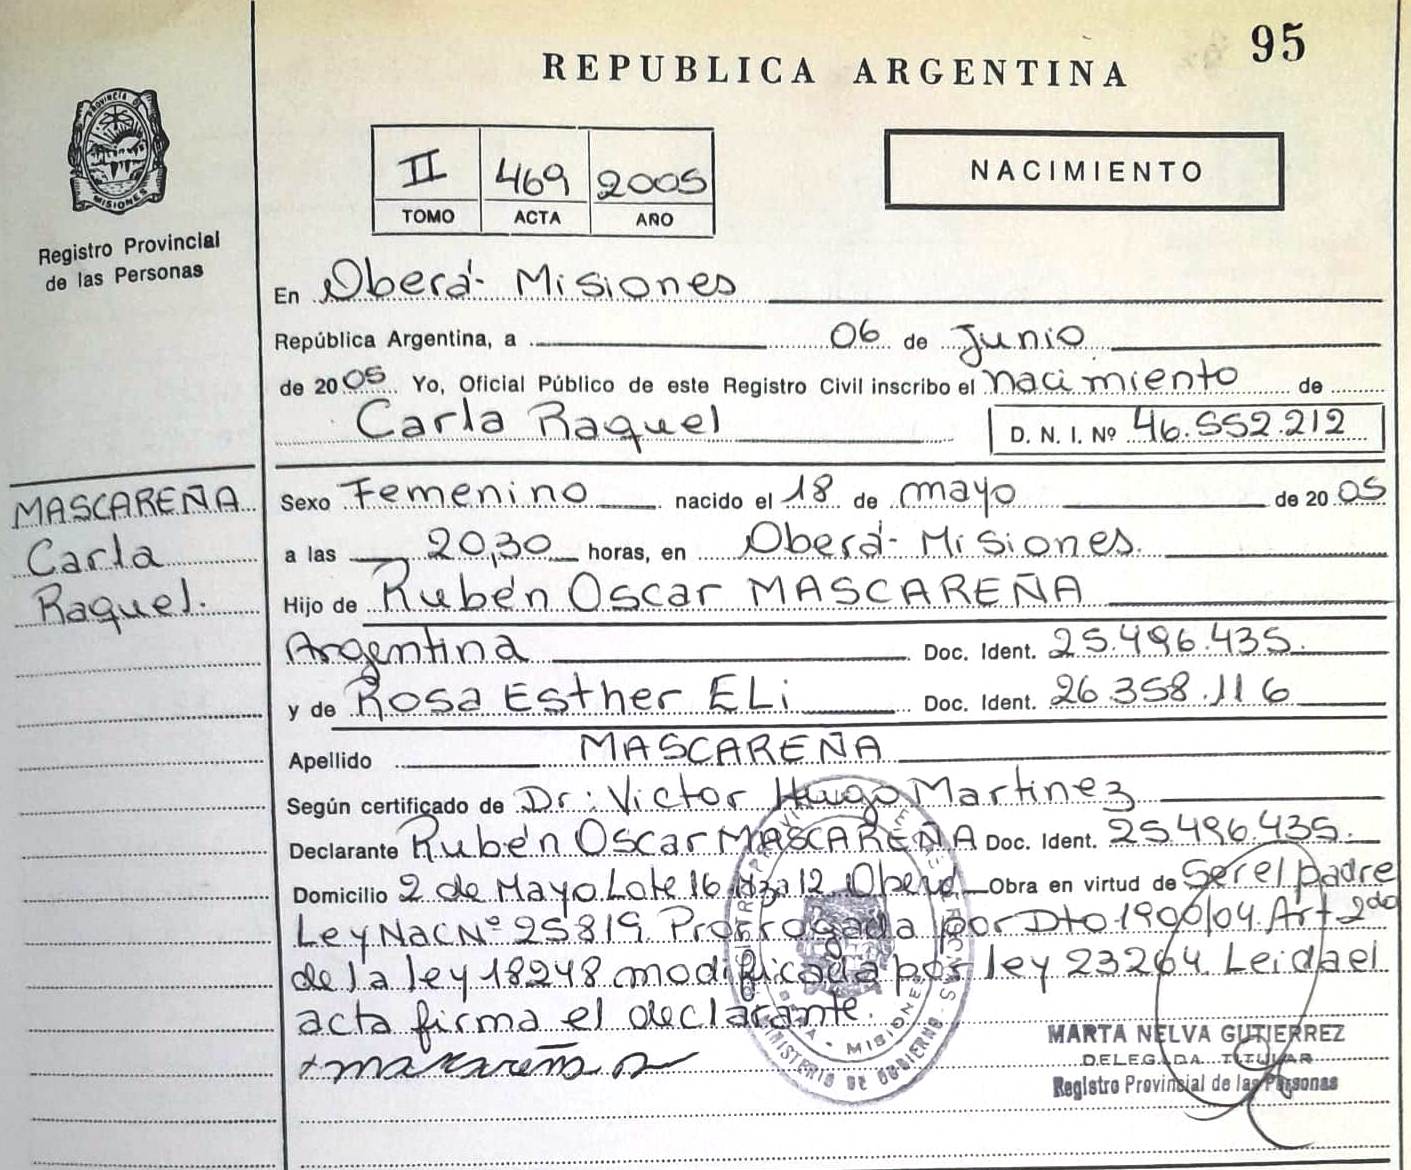 95
REPUBLICA ARGENTINA
PROVINCIA D
MISIONES
Registro Provincial
de las Personas
II 469 2005
TOMO ACTA AÑO
NACIMIENTO
En Oberá- Misiones
República Argentina, a 06 de Junio
de 2005 Yo, Oficial Público de este Registro Civil inscribo el nacimiento de
Carla Raquel D. N. I. Nº 46.552.212
MASCAREÑA
Carla
Raquel.
Sexo Femenino nacido el 18 de mayo de 2005
a las 20,30 horas, en Oberá- Misiones.
Hijo de Rubén Oscar MASCAREÑA
Argentina Doc. Ident. 25.496.435.
y de Rosa Esther ELi Doc. Ident. 26.358.116
Apellido MASCAREÑA
Según certificado de Dr: Victor Hugo Martinez
Declarante Rubén Oscar MASCAREÑA Doc. Ident. 25.496.435.
Domicilio 2 de Mayo Lote 16 Mza 12 Oberá Obra en virtud de Ser el padre
Ley Nac Nº 25819 Prorrogada por Dto 1900/04 Art 2do
de la ley 18248 modificada por ley 23264. Leida el
acta firma el declarante.
MARTA NELVA GUTIERREZ
DELEGADA TITULAR
Registro Provincial de las Personas
MISIONES
MINISTERIO DE GOBIERNO